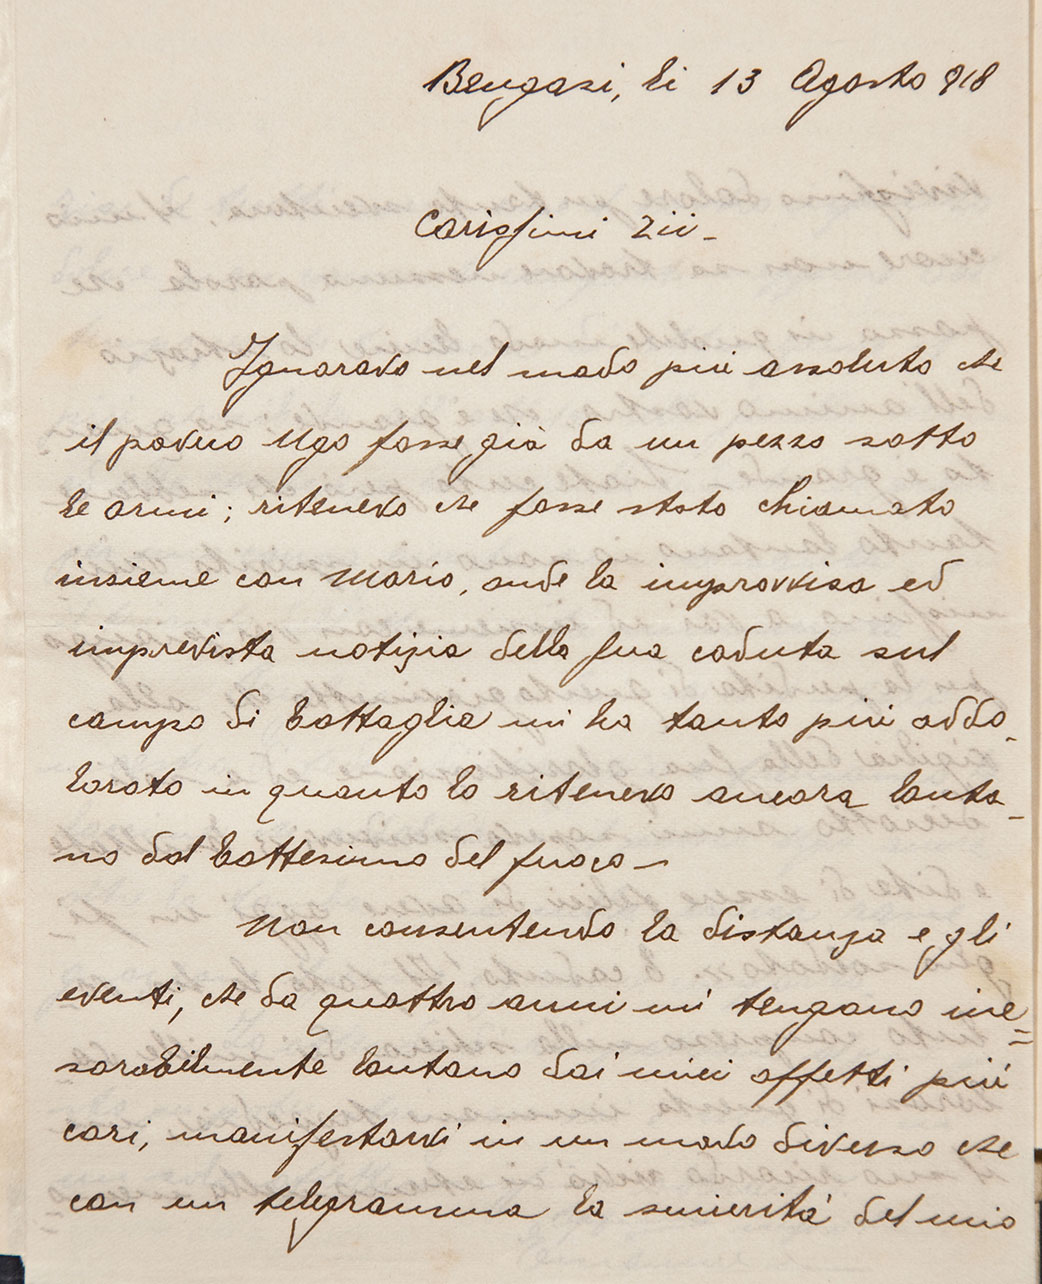 Bengasi, li 13 Agosto 918
Carissimi Zii -
Ignoravo nel modo più assoluto che
il povero Ugo fosse già da un pezzo sotto
le armi; ritenevo che fosse stato chiamato
insieme con Mario, onde la improvvisa ed
imprevista notizia della sua caduta sul
campo di battaglia mi ha tanto più addo-
lorato in quanto lo ritenevo ancora lonta-
no dal battesimo del fuoco -
Non consentendo la distanza e gli
eventi, che da quattro anni mi tengano ine=
sorabilmente lontano dai miei affetti più
cari, manifestarvi in un modo diverso che
con un telegramma la sincerità del mio